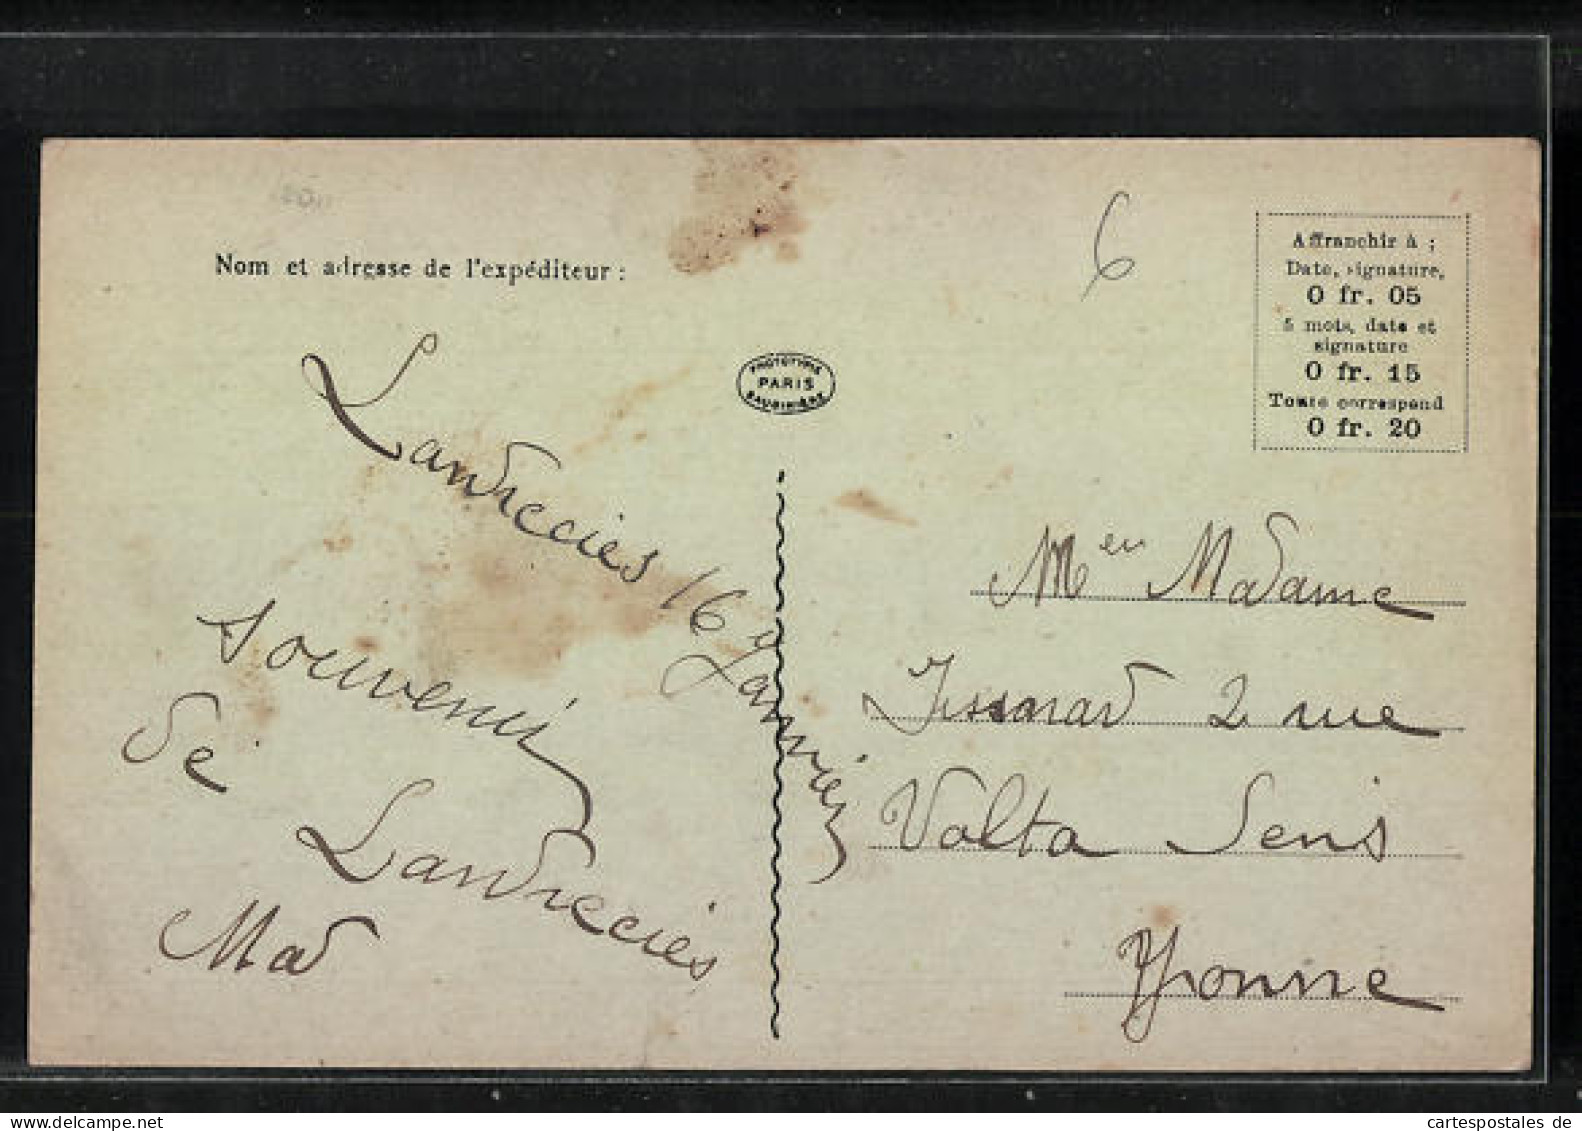 Nom et adresse de l'expéditeur :
6
Affranchir à ;
Date, signature,
0 fr. 05
5 mots, date et
signature
0 fr. 15
Toute correspond
0 fr. 20
PHOTOTYPIE
PARIS
BAUDINIÈRE
Landrecies 16 Janvier
souvenir
de
Landrecies
Mad
Mr en Madame
2 rue
Volta Sens
Yvonne
cartespostales de